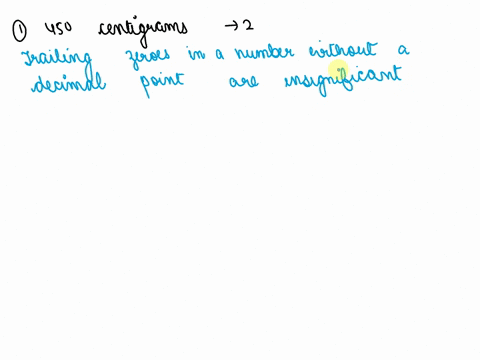 ① 450 centigrams → 2
Trailing zeroes in a number without a
decimal point are insignificant